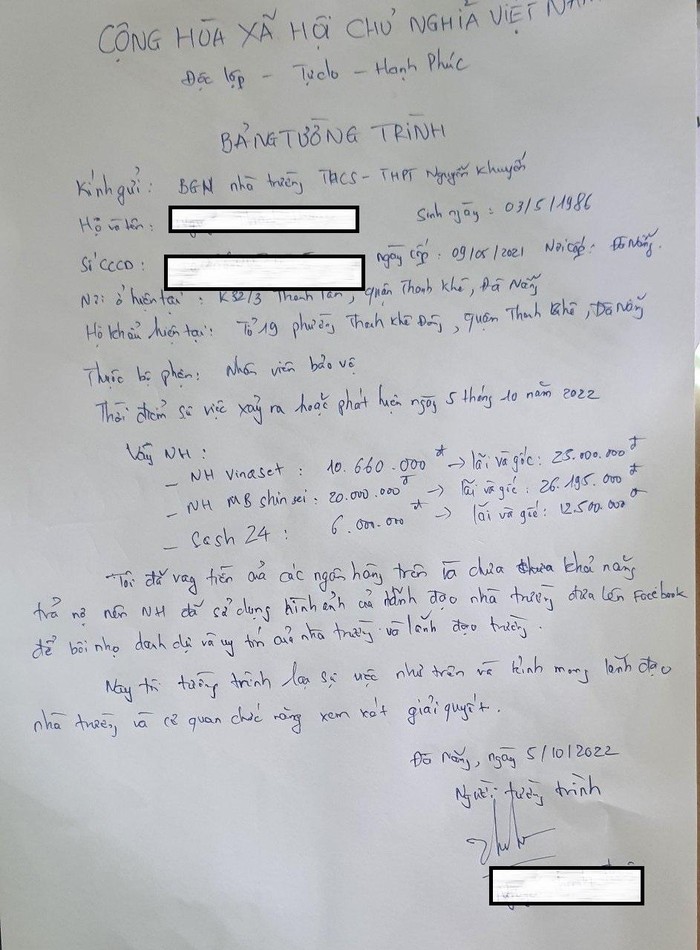 CỘNG HÒA XÃ HỘI CHỦ NGHĨA VIỆT NAM
Độc lập - Tự do - Hạnh Phúc
BẢNG TƯỜNG TRÌNH
Kính gửi : BGH nhà trường THCS - THPT Nguyễn Khuyến
Họ và tên : Sinh ngày : 03/5/1986
Số CCCD : ngày cấp : 09/05/2021 Nơi cấp : Đà Nẵng.
Nơi ở hiện tại : K32/3 Thanh Tân, quận Thanh Khê, Đà Nẵng
Hộ khẩu hiện tại : Tổ 19 phường Thanh Khê Đông, quận Thanh Khê, Đà Nẵng
Thuộc bộ phận : Nhân viên bảo vệ
Thời điểm sự việc xảy ra hoặc phát hiện ngày 5 tháng 10 năm 2022
Vay NH :
- NH vinaset : 10.660.000đ → lãi và gốc : 25.000.000đ
- NH MB shinsei : 20.000.000đ → lãi và gốc : 26.195.000đ
- Cash 24 : 6.000.000đ → lãi và gốc : 12.500.000đ
Tôi đã vay tiền của các ngân hàng trên và chưa khả năng
trả nợ nên NH đã sử dụng hình ảnh của lãnh đạo nhà trường đưa lên Facebook
để bôi nhọ danh dự và uy tín của nhà trường và lãnh đạo trường.
Nay tôi tường trình lại sự việc như trên và kính mong lãnh đạo
nhà trường và cơ quan chức năng xem xét giải quyết.
Đà Nẵng, ngày 5/10/2022
Người tường trình